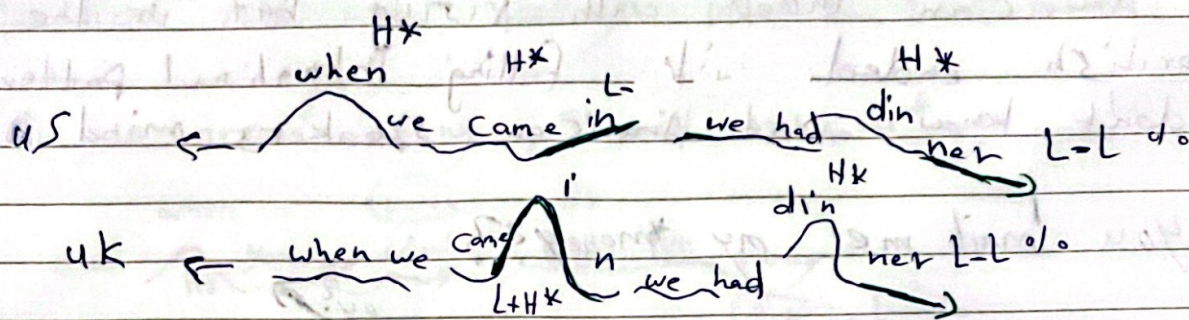 H* H* L- H*
us ← when we came in we had din ner L-L %
H*
uk ← when we came i n we had din ner L-L %
L+H*